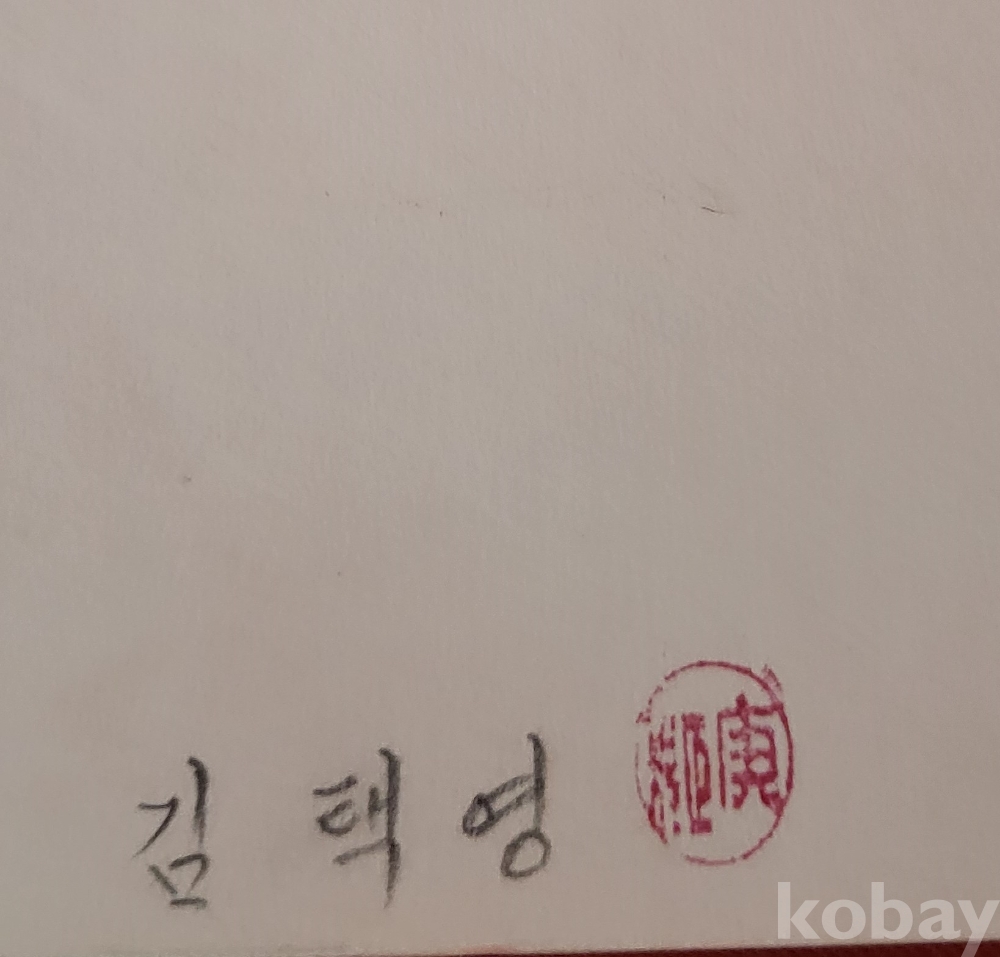 김택영
kobay